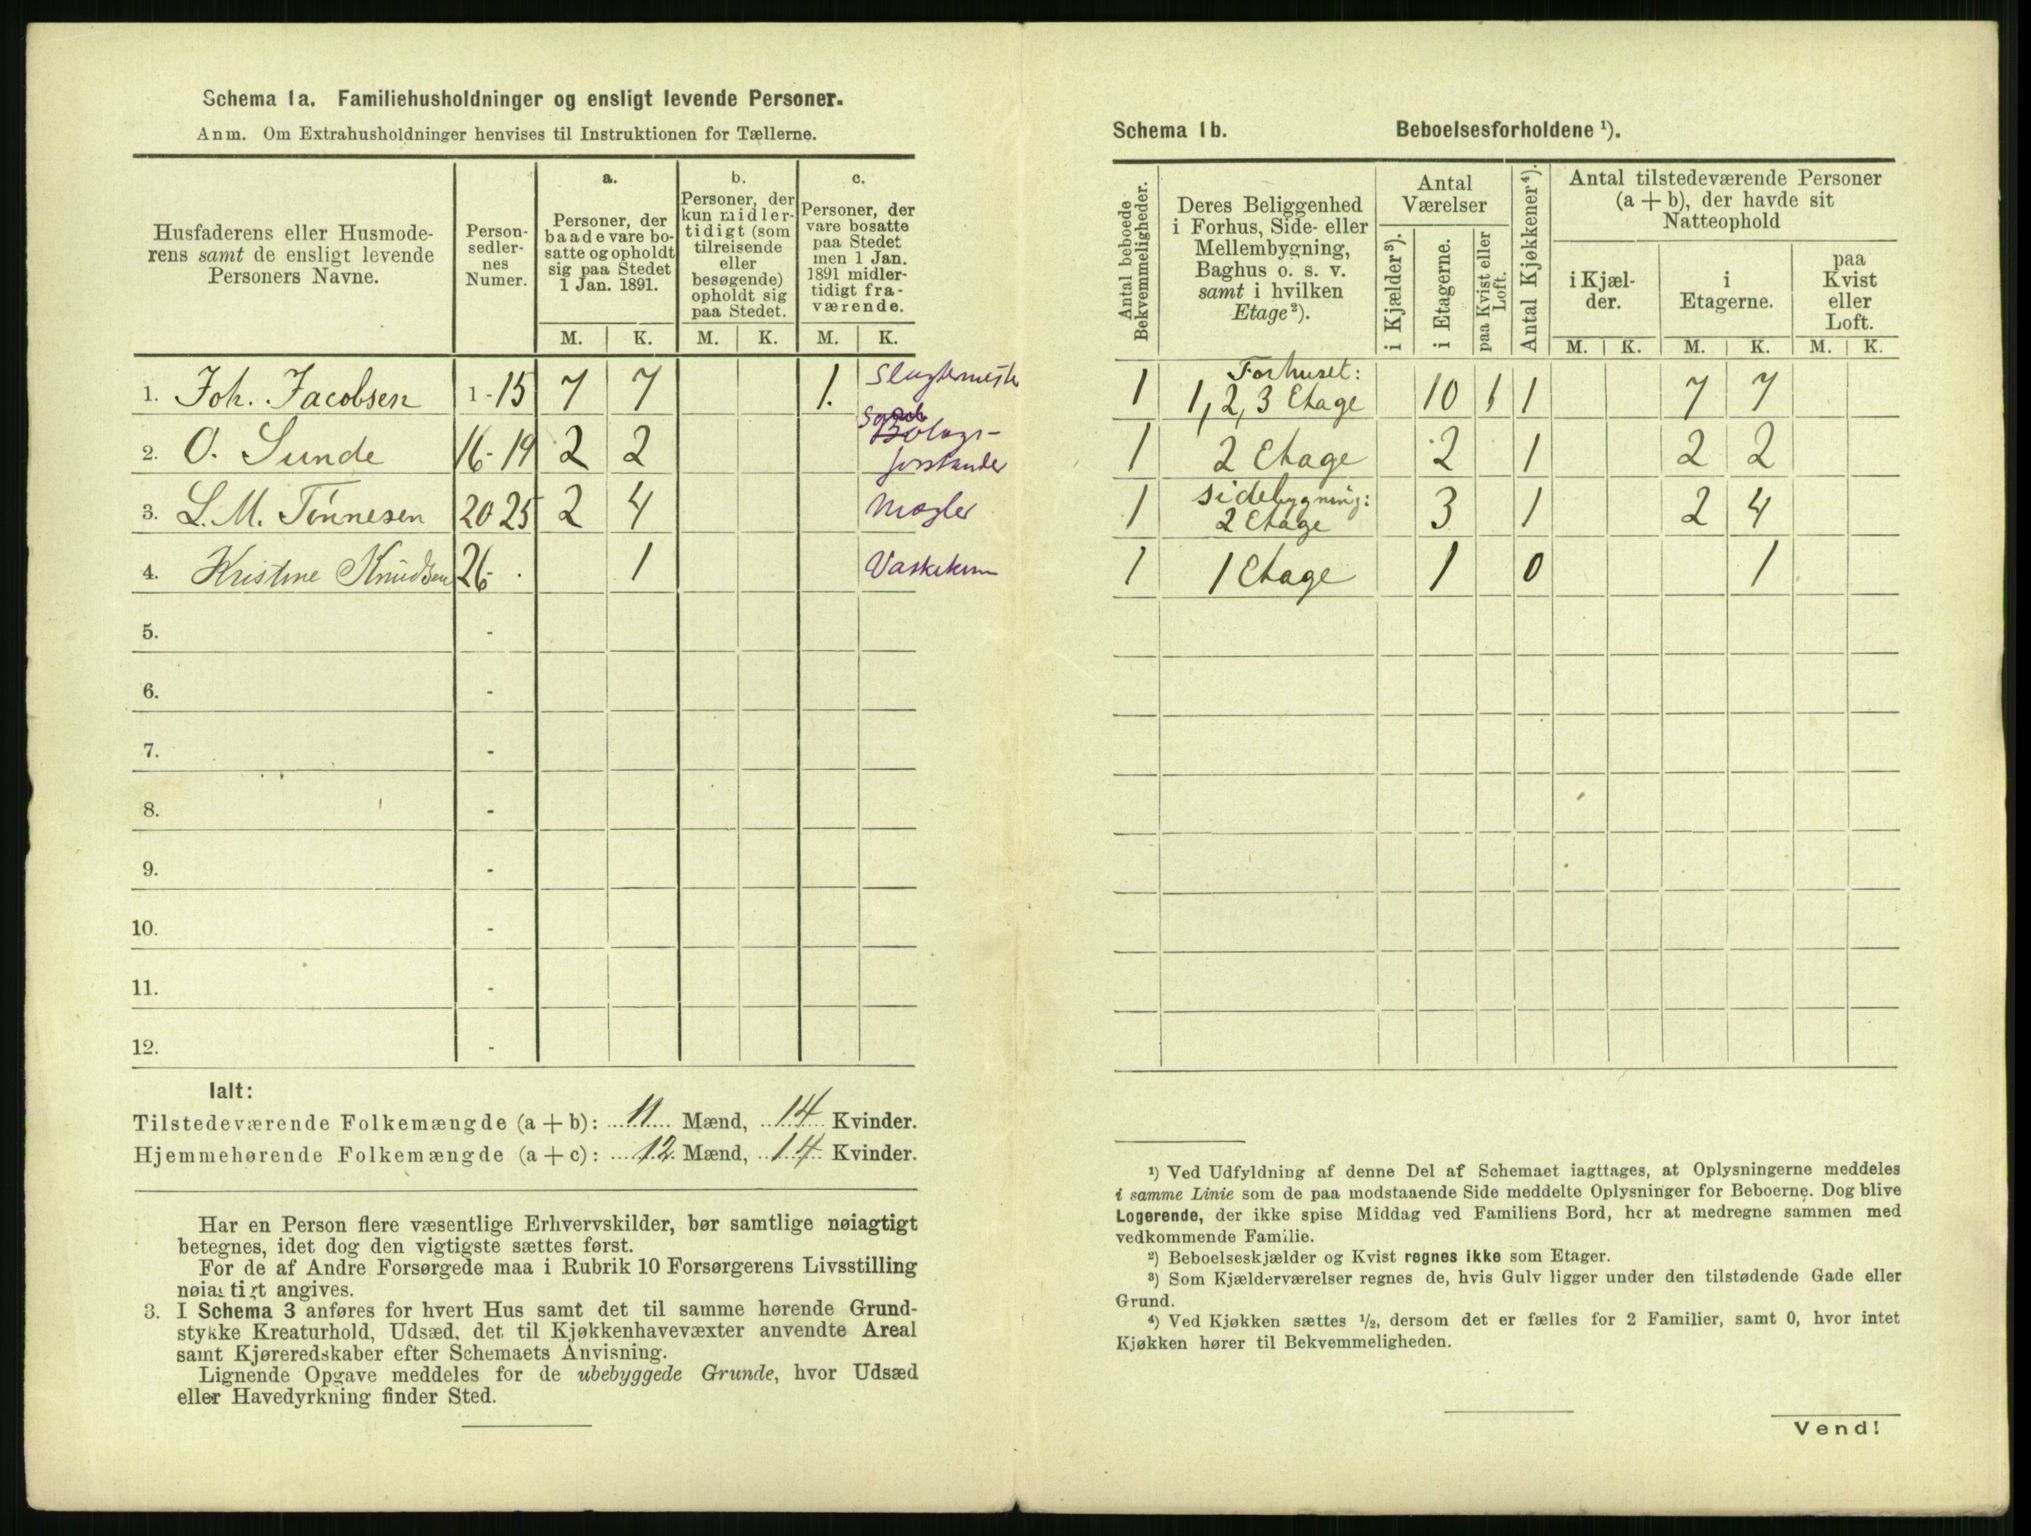 Schema 1a. Familiehusholdninger og ensligt levende Personer.
Anm. Om Extrahusholdninger henvises til Instruktionen for Tællerne.
Husfaderens eller Husmode-
rens samt de ensligt levende
Personers Navne.
Person-
sedler-
nes
Numer.
a.
Personer, der
baade vare bo-
satte og opholdt
sig paa Stedet
1 Jan. 1891.
b.
Personer, der
kun midler-
tidigt (som
tilreisende
eller
besøgende)
opholdt sig
paa Stedet.
c.
Personer, der
vare bosatte
paa Stedet
men 1 Jan.
1891 midler-
tidigt fra-
værende.
M. K. M. K. M. K.
1. Joh. Jacobsen 1 - 15 7 7 1. Slagtermester
2. O. Sunde 16 - 19 2 2 Bolags-
forstander
3. L. M. Tønnesen 20 25 2 4 Mægler
4. Kristine Knudsen 26 - . 1 Vaskekone
5. -
6. -
7. -
8. -
9. -
10. -
11. -
12. -
Ialt:
Tilstedeværende Folkemængde (a + b): 11 Mænd, 14 Kvinder.
Hjemmehørende Folkemængde (a + c): 12 Mænd, 14 Kvinder.
Har en Person flere væsentlige Erhvervskilder, bør samtlige nøiagtigt
betegnes, idet dog den vigtigste sættes først.
For de af Andre Forsørgede maa i Rubrik 10 Forsørgerens Livsstilling
nøiagtigt angives.
3. I Schema 3 anføres for hvert Hus samt det til samme hørende Grund-
stykke Kreaturhold, Udsæd, det til Kjøkkenhavevæxter anvendte Areal
samt Kjøreredskaber efter Schemaets Anvisning.
Lignende Opgave meddeles for de ubebyggede Grunde, hvor Udsæd
eller Havedyrkning finder Sted.
Schema 1b. Beboelsesforholdene ¹).
Antal beboede
Bekvemmeligheder.
Deres Beliggenhed
i Forhus, Side- eller
Mellembygning,
Baghus o. s. v.
samt i hvilken
Etage²).
Antal
Værelser
i Kjælder³).
i Etagerne.
paa Kvist eller
Loft.
Antal Kjøkkener⁴).
Antal tilstedeværende Personer
(a + b), der havde sit
Natteophold
i Kjæl-
der.
i
Etagerne.
paa
Kvist
eller
Loft.
M. K. M. K. M. K.
Forhuset:
1 1, 2, 3 Etage 10 1 1 7 7
1 2 Etage 2 1 2 2
Sidebygning:
1 2 Etage 3 1 2 4
1 1 Etage 1 0 1
¹) Ved Udfyldning af denne Del af Schemaet iagttages, at Oplysningerne meddeles
i samme Linie som de paa modstaaende Side meddelte Oplysninger for Beboerne. Dog blive
Logerende, der ikke spise Middag ved Familiens Bord, her at medregne sammen med
vedkommende Familie.
²) Beboelseskjælder og Kvist regnes ikke som Etager.
³) Som Kjælderværelser regnes de, hvis Gulv ligger under den tilstødende Gade eller
Grund.
⁴) Ved Kjøkken sættes ½, dersom det er fælles for 2 Familier, samt 0, hvor intet
Kjøkken hører til Bekvemmeligheden.
Vend!